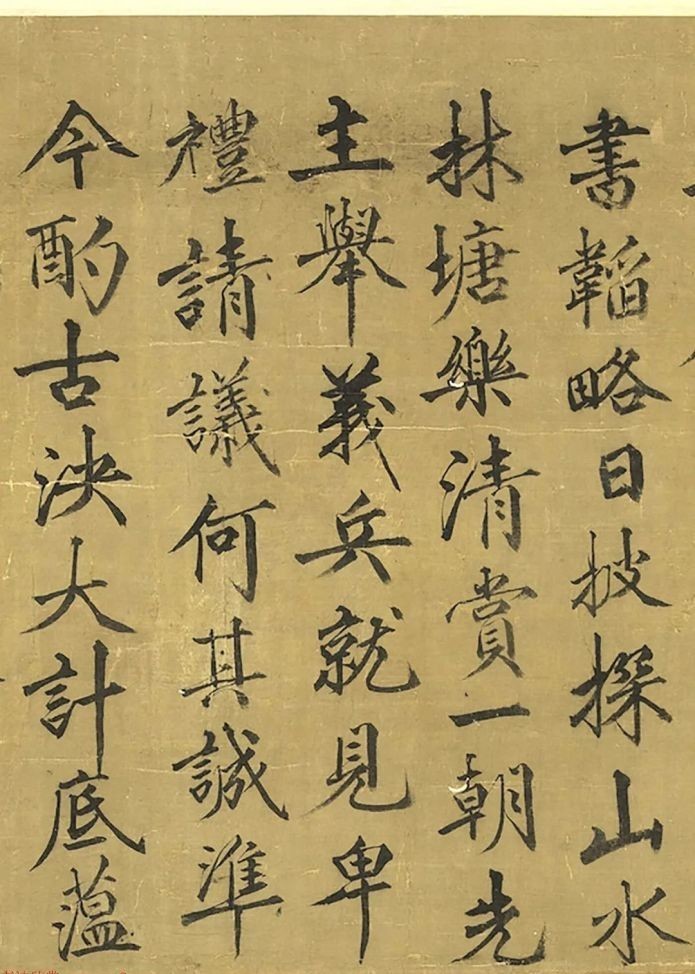 書韜略日披探山水
林塘樂清賞一朝先
主舉義兵就見卑
禮請議何其誠準
今酌古決大計底蘊